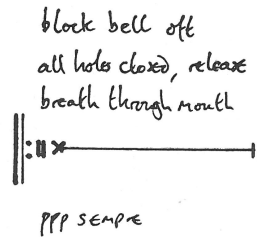 block bell off
all holes closed, release
breath through mouth
ppp SEMPRE